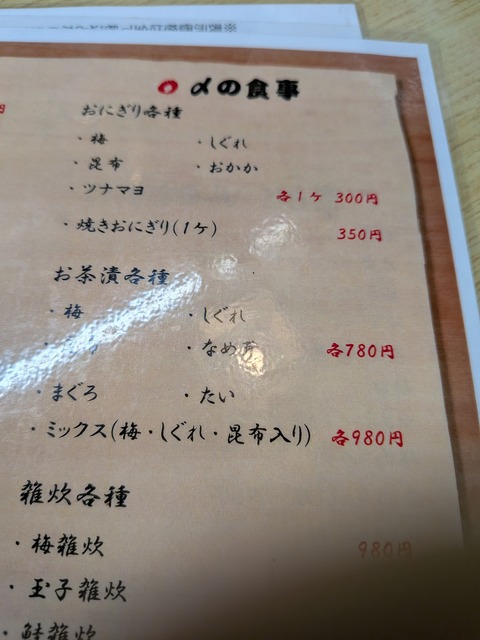 〆の食事
おにぎり各種
・梅 ・しぐれ
・昆布 ・おかか
・ツナマヨ 各1ケ 300円
・焼きおにぎり(1ケ) 350円
お茶漬各種
・梅 ・しぐれ
・なめ 各780円
・まぐろ ・たい
・ミックス(梅・しぐれ・昆布入り) 各980円
雑炊各種
・梅雑炊 980円
・玉子雑炊
・鮭雑炊